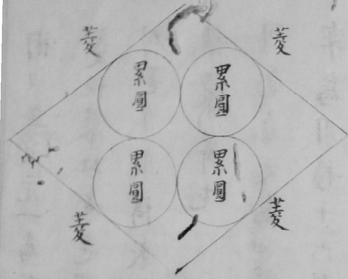 菱
菱
累圓
累圓
累圓
累圓
菱
菱